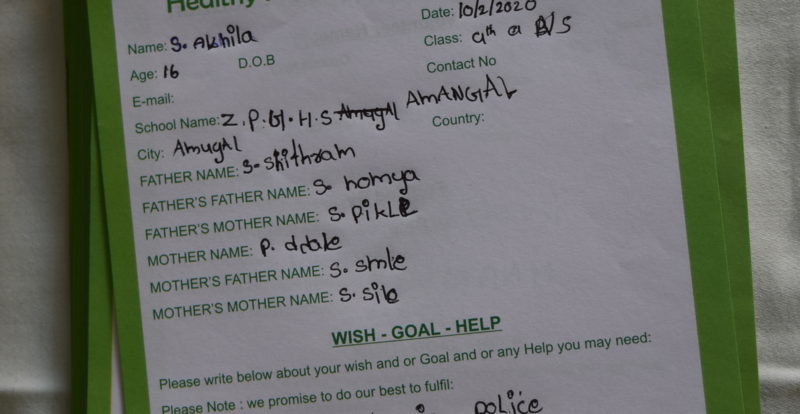 Healthy
Date: 10/2/2020
Name: S. Akhila
Class: 9th a B/S
Age: 16 D.O.B
Contact No
E-mail:
School Name: Z.P.G.H.S AMANGAL
City: AmugAl Country:
FATHER NAME: S. Shithram
FATHER'S FATHER NAME: S. homya
FATHER'S MOTHER NAME: S. pikle
MOTHER NAME: P.
MOTHER'S FATHER NAME: S. smle
MOTHER'S MOTHER NAME: S. sib
WISH - GOAL - HELP
Please write below about your wish and or Goal and or any Help you may need:
Please Note : we promise to do our best to fulfil:
police